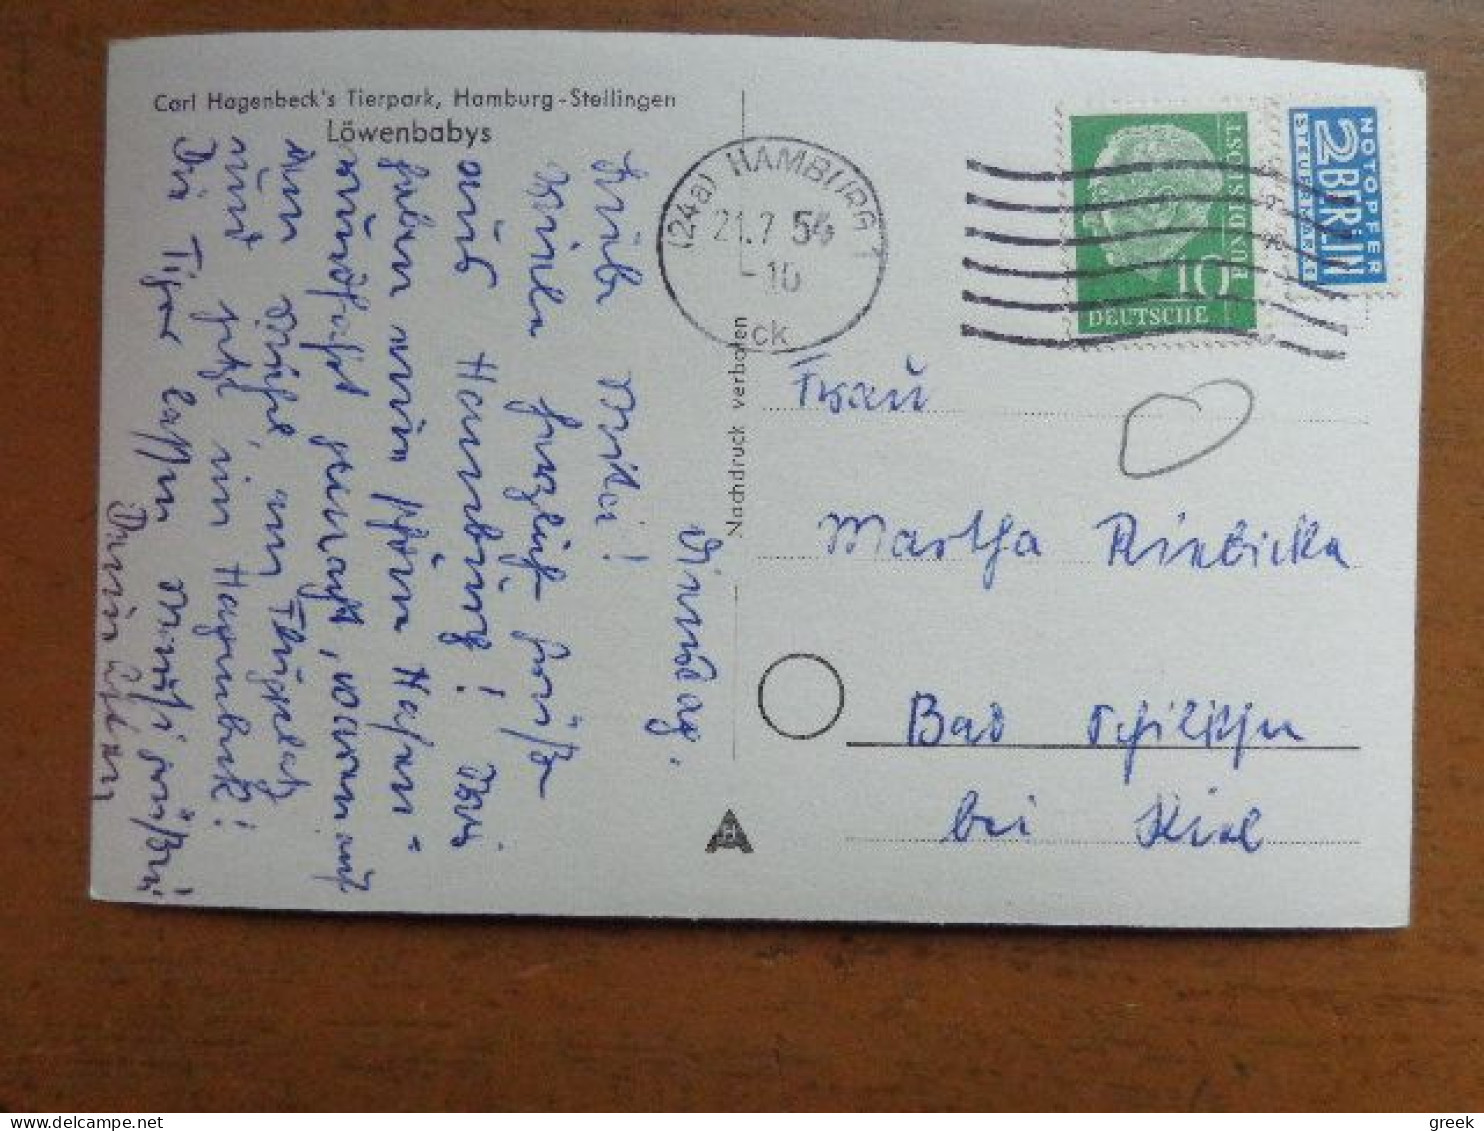 Carl Hagenbeck's Tierpark, Hamburg-Stellingen
Löwenbabys
Dienstag.
Liebe Mutti!
Viele herzliche Grüße
aus Hamburg! Wir
haben eine schöne Hafen-
rundfahrt gemacht, waren auf
am Flugplatz
und jetzt im Hagenbeck!
Die Tiger lassen
Nachdruck verboten
(24a) HAMBURG 1
21.7 54
-10
ck
10
DEUTSCHE
BUNDESPOST
NOTOPFER
2 BERLIN
STEUERMARKE
Frau
Martha
Bad
bei Kiel
A
greek